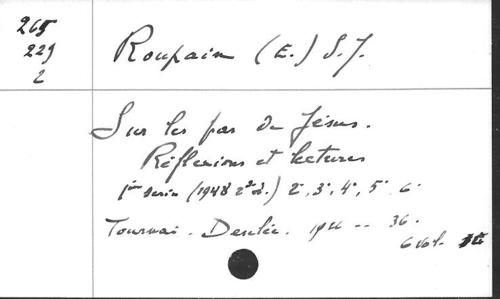 265
229
2
Roupain (E.) S.J.
Sur les pas de Jésus.
Réflexions et lectures
1ère série (1948 2e éd.) 2e, 3e, 4e, 5e 6e
Tournai. Desclée. 36.
6 vol.